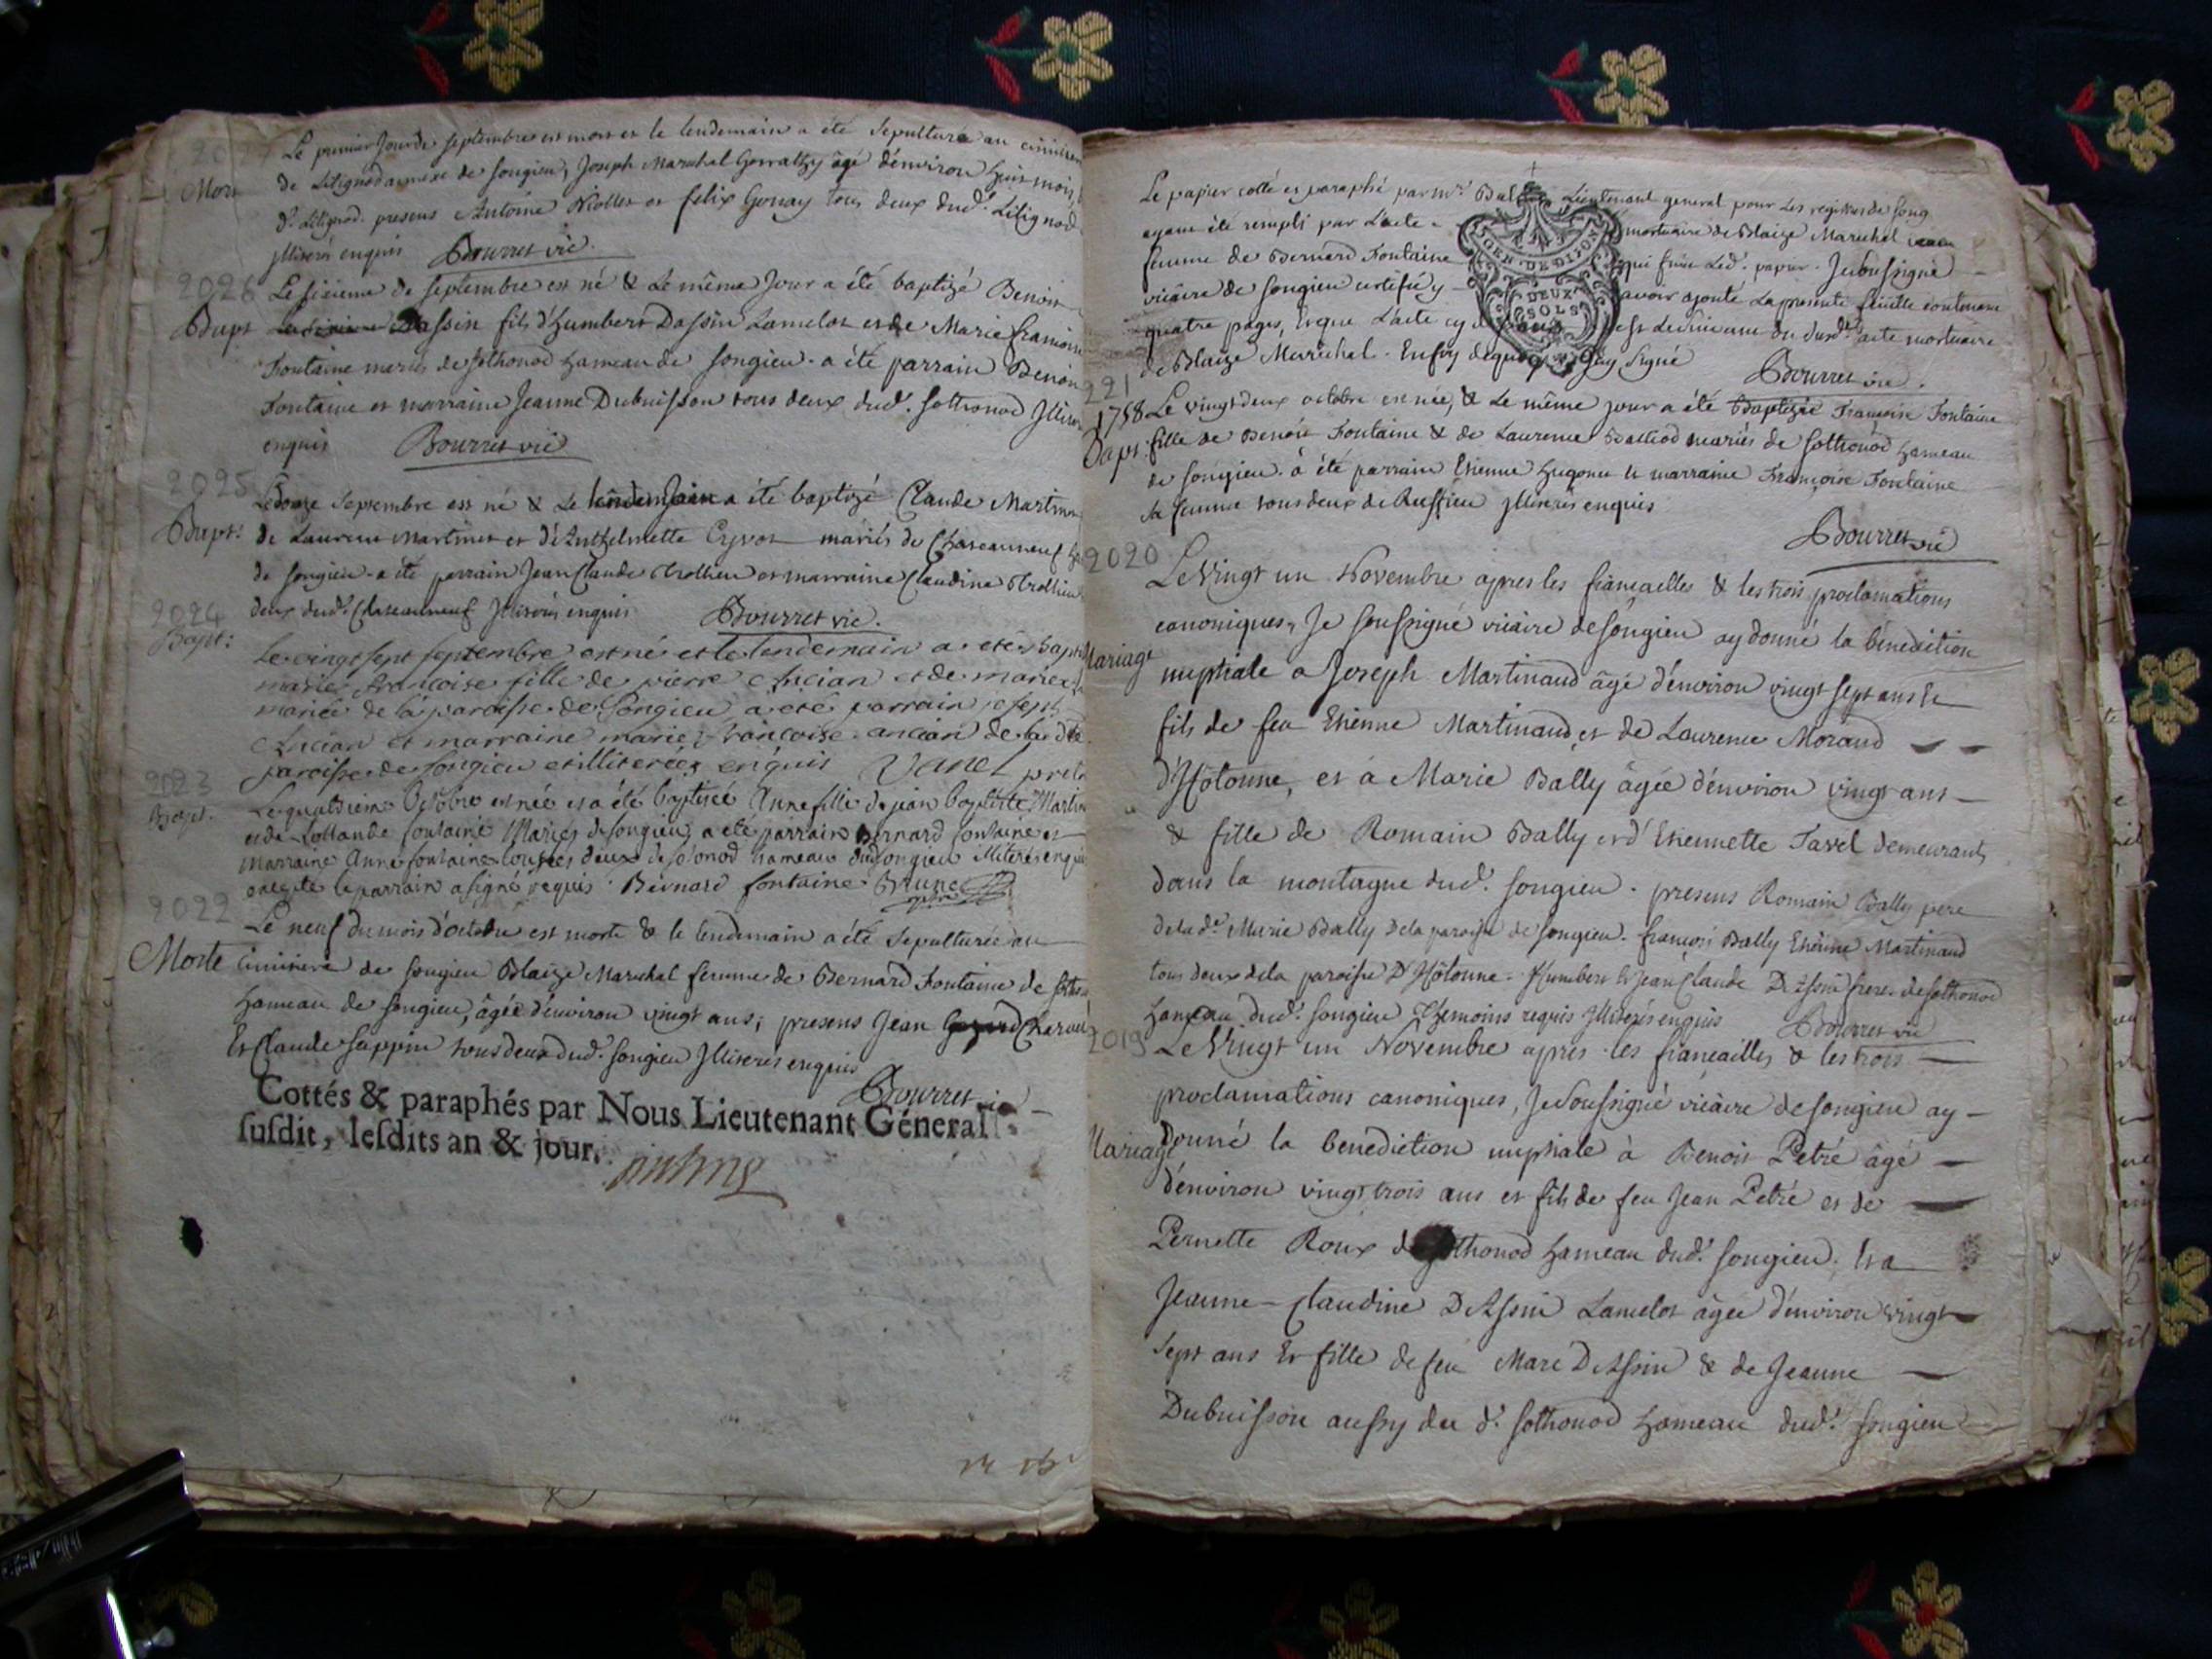 2027
Le premier Jour de septembre est mort et le lendemain a été sepulturé au
Mort
de Litignod annexe de songieu, Joseph Marechal âgé d'environ huit mois,
d. Litignod. presens Antoine et felix Gonay tous deux dud. Litignod
Illiterés enquis Bourret vic.
2026
Le sixieme de septembre est né & Le même Jour a été baptizé Benoit
Bapt
Dassin fils d'humbert Dassin Lamelot et de Marie francoise
Fontaine mariés de sothonod hameau de songieu. a été parrain Benoit
Fontaine et marraine Jeanne Dubuisson tous deux dud. sothonod
enquis Bourret vic
2025
Le douze Septembre est né & Le lendemain a été baptizé Claude Martin
Bapt:
de Laurent Martinet et d'Anthelmette mariés de Chateauneuf
de songieu. a été parrain Jean Claude et marraine Claudine
deux dud. Chateauneuf Illiterés enquis Bourret vic.
2024
Bapt:
Le vingt sept septembre est né et le lendemain a eté
marie francoise fille de pierre Ancian et de marie
mariée de la paroisse de songieu, a eté parrain joseph
Ancian et marraine marie francoise ancian de la dte
paroisse de songieu et illiterées enquis Vanel
2023
Bapt.
Le quatrieme Octobre est née et a été baptisée Anne fille de jean baptiste
et de fontaine Mariés de songieu, a eté parrain Bernard fontaine et
marraine Anne fontaine tous deux de hameau dud songieu illiterés
le parrain a signé requis. Bernard fontaine Brunet
2022
Le neuf du mois d'octobre est morte & le lendemain a été Sepulturée au
Morte
cimitiere de songieu Blaize Marechal femme de Bernard Fontaine de
hameau de songieu, âgée d'environ vingt ans; presens Jean
Et Claude sappin tous deux dud. songieu Illiterés enquis
Bourret vic
Cottés & paraphés par Nous Lieutenant Géneral
susdit, lesdits an & jour.
Le papier cotté et paraphé par mr. Lieutenant general pour Les registres de song
ayant été rempli par L'acte mortuaire de Blaize Marechal
femme de Bernard Fontaine qui finit Led. papier. Je soussigné
vicaire de songieu certifie y avoir ajouté La presente feuille contenant
quatre pages, Et que L'acte cy est Le suivant du susd. acte mortuaire
de Blaize Marechal. En foy de quoy Jay signé
Bourret vic.
GEN. DE DIJON
DEUX
SOLS
221
1758
Le vingt deux octobre est née, & Le même jour a été Baptizée Francoise Fontaine
Bapt.
fille de Benoit Fontaine & de Laurence Balliod mariés de sothonod hameau
de songieu. a été parrain Etienne Hugonet & marraine Françoise Fontaine
sa femme tous deux de Ruffieu Illiterés enquis
Bourret vic
2020
Le Vingt un Novembre apres les fiançailles & les trois proclamations
canoniques, Je soussigné vicaire de songieu ay donné la benediction
Mariage
nuptiale a Joseph Martinaud âgé d'environ vingt sept ans &
fils de feu Etienne Martinaud, et de Laurence Morand
d'Hôtonne, et à Marie Bally âgée d'environ vingt ans
& fille de Romain Bally et d'Etiennette Tavel demeurants
dans la montagne dud. songieu. presens Romain Bally pere
de la de. Marie Bally de la paroisse de songieu. françois Bally Etienne Martinaud
tous deux de la paroisse D'Hôtonne. Humbert & Jean Claude DAssin freres de sothonod
hameau dud. songieu Themoins requis Illiterés enquis Bourret vic
2019
Le Vingt un Novembre apres les fiançailles & les trois
proclamations canoniques, Je soussigné vicaire de songieu ay
Mariage
donné la benediction nuptiale à Benoit Petré âgé
d'environ vingt trois ans et fils de feu Jean Petré et de
Pernette Roux de sothonod hameau dud. songieu. Et a
Jeanne-Claudine DAssin Lamelot âgée d'environ vingt
sept ans Et fille de feu Marc DAssin & de Jeanne
Dubuisson aussy du d. sothonod hameau dud. songieu